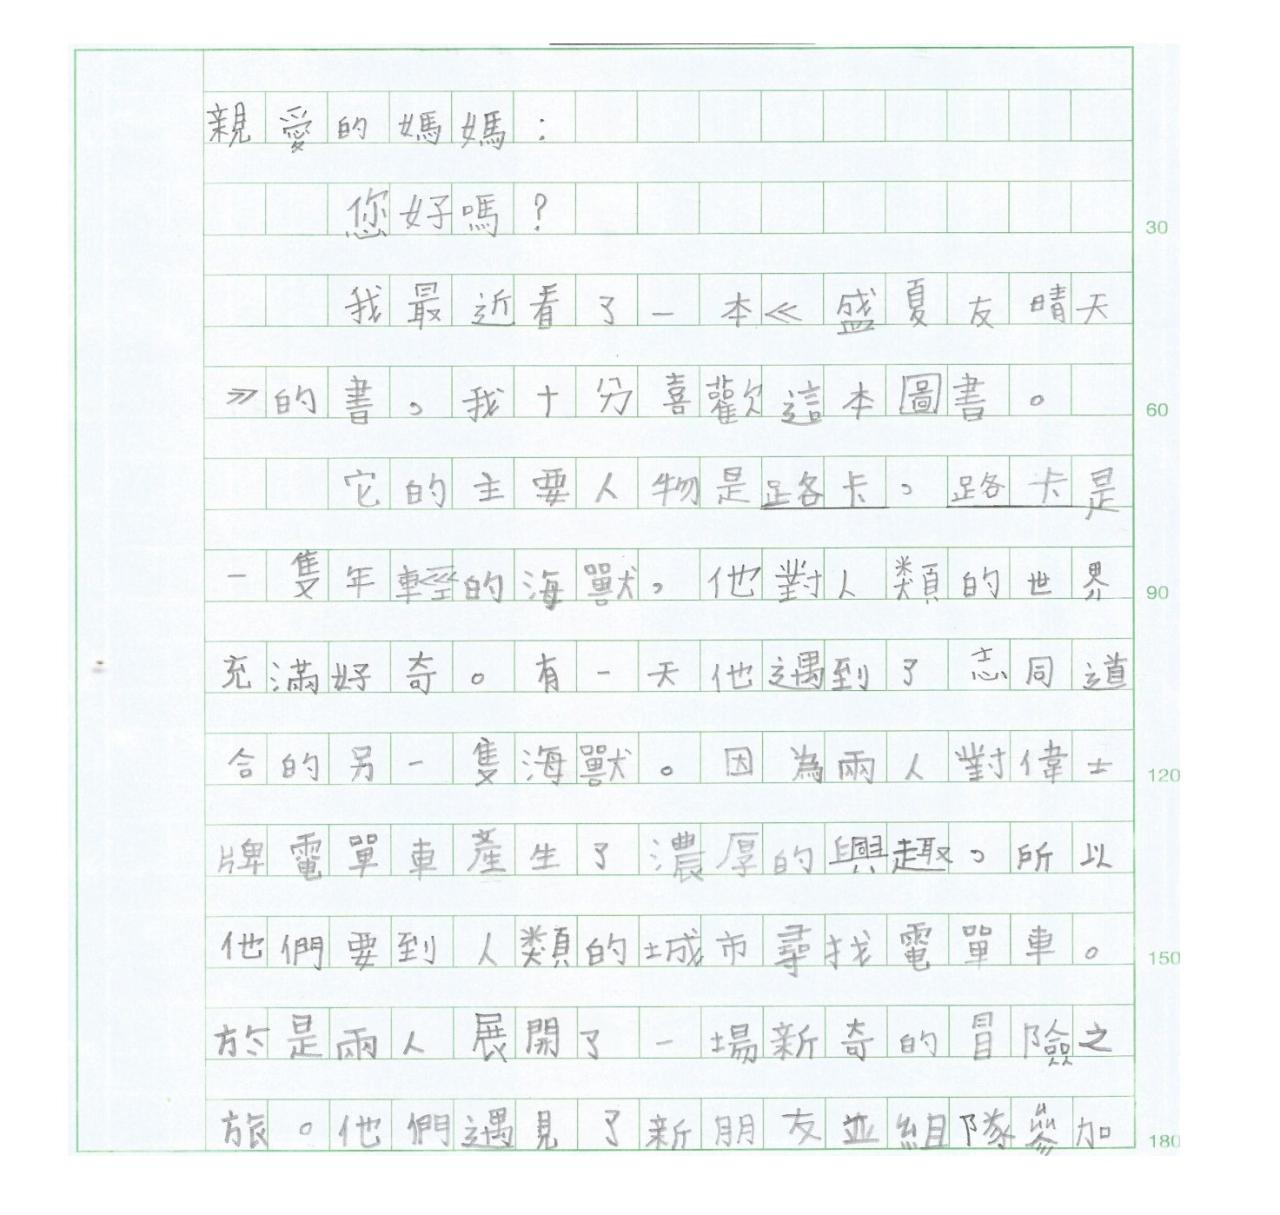 親愛的媽媽：
您好嗎？
我最近看了一本≪盛夏友晴天 30
≫的書。我十分喜歡這本圖書。 60
它的主要人物是路卡。路卡是
一隻年輕的海獸，他對人類的世界 90
充滿好奇。有一天他遇到了志同道
合的另一隻海獸。因為兩人對偉士 120
牌電單車產生了濃厚的興趣。所以
他們要到人類的城市尋找電單車。 150
於是兩人展開了一場新奇的冒險之
旅。他們遇見了新朋友並組隊參加 180